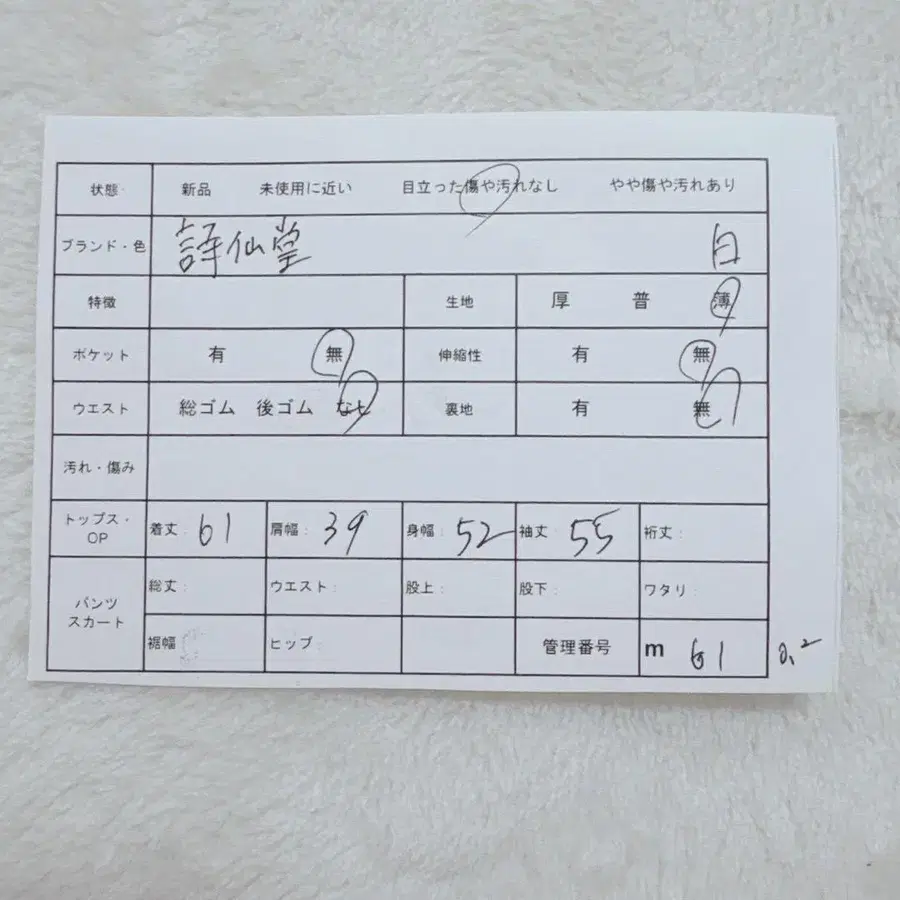 状態 新品 未使用に近い 目立った傷や汚れなし やや傷や汚れあり
ブランド・色 詩仙堂 白
特徴 生地 厚 普 薄
ポケット 有 無 伸縮性 有 無
ウエスト 総ゴム 後ゴム なし 裏地 有 無
汚れ・傷み
トップス・OP 着丈: 61 肩幅: 39 身幅: 52 袖丈: 55 裄丈:
パンツ スカート 総丈: ウエスト: 股上: 股下: ワタリ:
裾幅 ヒップ: 管理番号 m 61 0.2